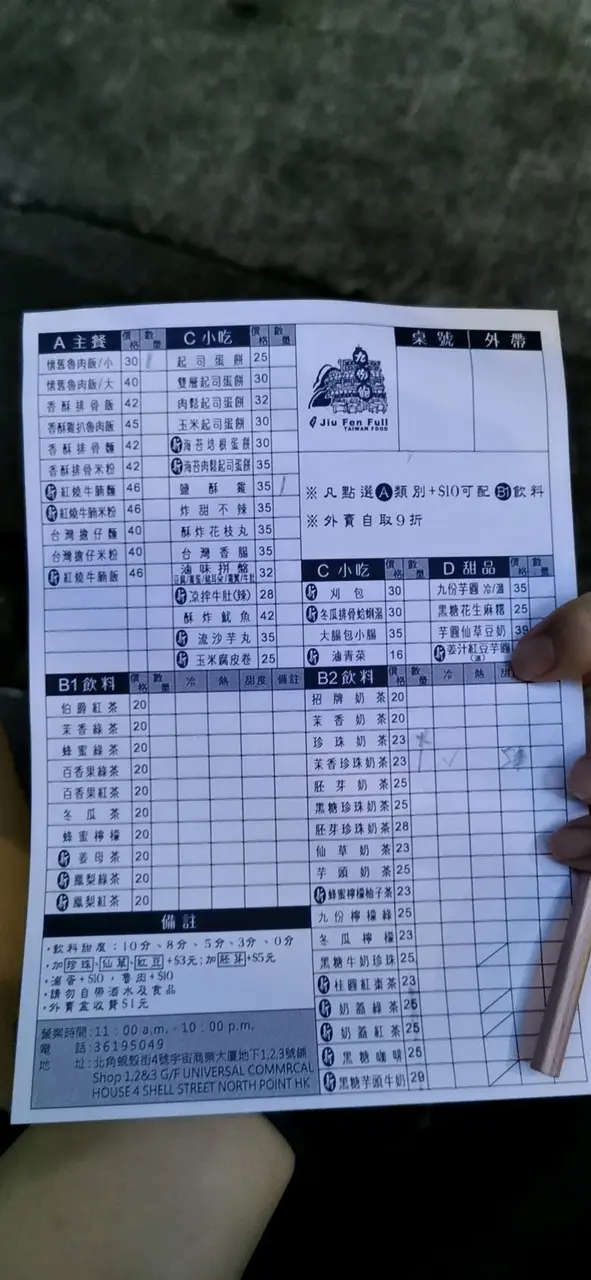 A 主餐 價格 數量
懷舊魯肉飯/小 30
懷舊魯肉飯/大 40
香酥排骨飯 42
香酥雞扒魯肉飯 45
香酥排骨麵 42
香酥排骨米粉 42
新 紅燒牛腩麵 46
新 紅燒牛腩米粉 46
台灣擔仔麵 40
台灣擔仔米粉 40
新 紅燒牛腩飯 46
C 小吃 價格 數量
起司蛋餅 25
雙層起司蛋餅 30
肉鬆起司蛋餅 32
玉米起司蛋餅 30
新 海苔培根蛋餅 30
新 海苔肉鬆起司蛋餅 35
鹽酥雞 35
炸甜不辣 35
酥炸花枝丸 35
台灣香腸 35
滷味拼盤 32
新 涼拌牛肚(辣) 28
酥炸魷魚 42
新 流沙芋丸 35
新 玉米腐皮卷 25
九份飽
Jiu Fen Full
TAIWAN FOOD
桌號 外帶
※ 凡點選A類別+$10可配B1飲料
※ 外賣自取9折
C 小吃 價格 數量
新 刈包 30
新 冬瓜排骨蛤蜊湯 30
大腸包小腸 35
新 滷青菜 16
D 甜品 價格 數量
九份芋圓 冷/溫 35
黑糖花生麻糬 25
芋圓仙草豆奶 39
新 姜汁紅豆芋圓
(溫)
B1飲料 價格 數量 冷 熱 甜度 備註
伯爵紅茶 20
茉香綠茶 20
蜂蜜綠茶 20
百香果綠茶 20
百香果紅茶 20
冬瓜茶 20
蜂蜜檸檬 20
新 姜母茶 20
新 鳳梨綠茶 20
新 鳳梨紅茶 20
B2飲料 價格 數量 冷 熱
招牌奶茶 20
茉香奶茶 20
珍珠奶茶 23
茉香珍珠奶茶 23
胚芽奶茶 25
黑糖珍珠奶茶 25
胚芽珍珠奶茶 28
仙草奶茶 23
芋頭奶茶 25
新 蜂蜜檸檬柚子茶 23
九份檸檬綠 25
冬瓜檸檬 23
黑糖牛奶珍珠 25
新 桂圓紅棗茶 23
新 奶蓋綠茶 25
新 奶蓋紅茶 25
新 黑糖咖啡 25
新 黑糖芋頭牛奶 29
備註
·飲料甜度：10分、8分、5分、3分、0分
·加珍珠、仙草、紅豆+$3元；加胚芽+$5元
·滷蛋+$10，魯肉+$10
·請勿自帶酒水及食品
·外賣盒收費$1元
營業時間：11：00 a.m. - 10：00 p.m.
電話：36195049
地址：北角蜆殼街4號宇宙商業大廈地下1,2,3號舖
Shop 1,2&3 G/F UNIVERSAL COMMRCAL
HOUSE 4 SHELL STREET NORTH POINT HK